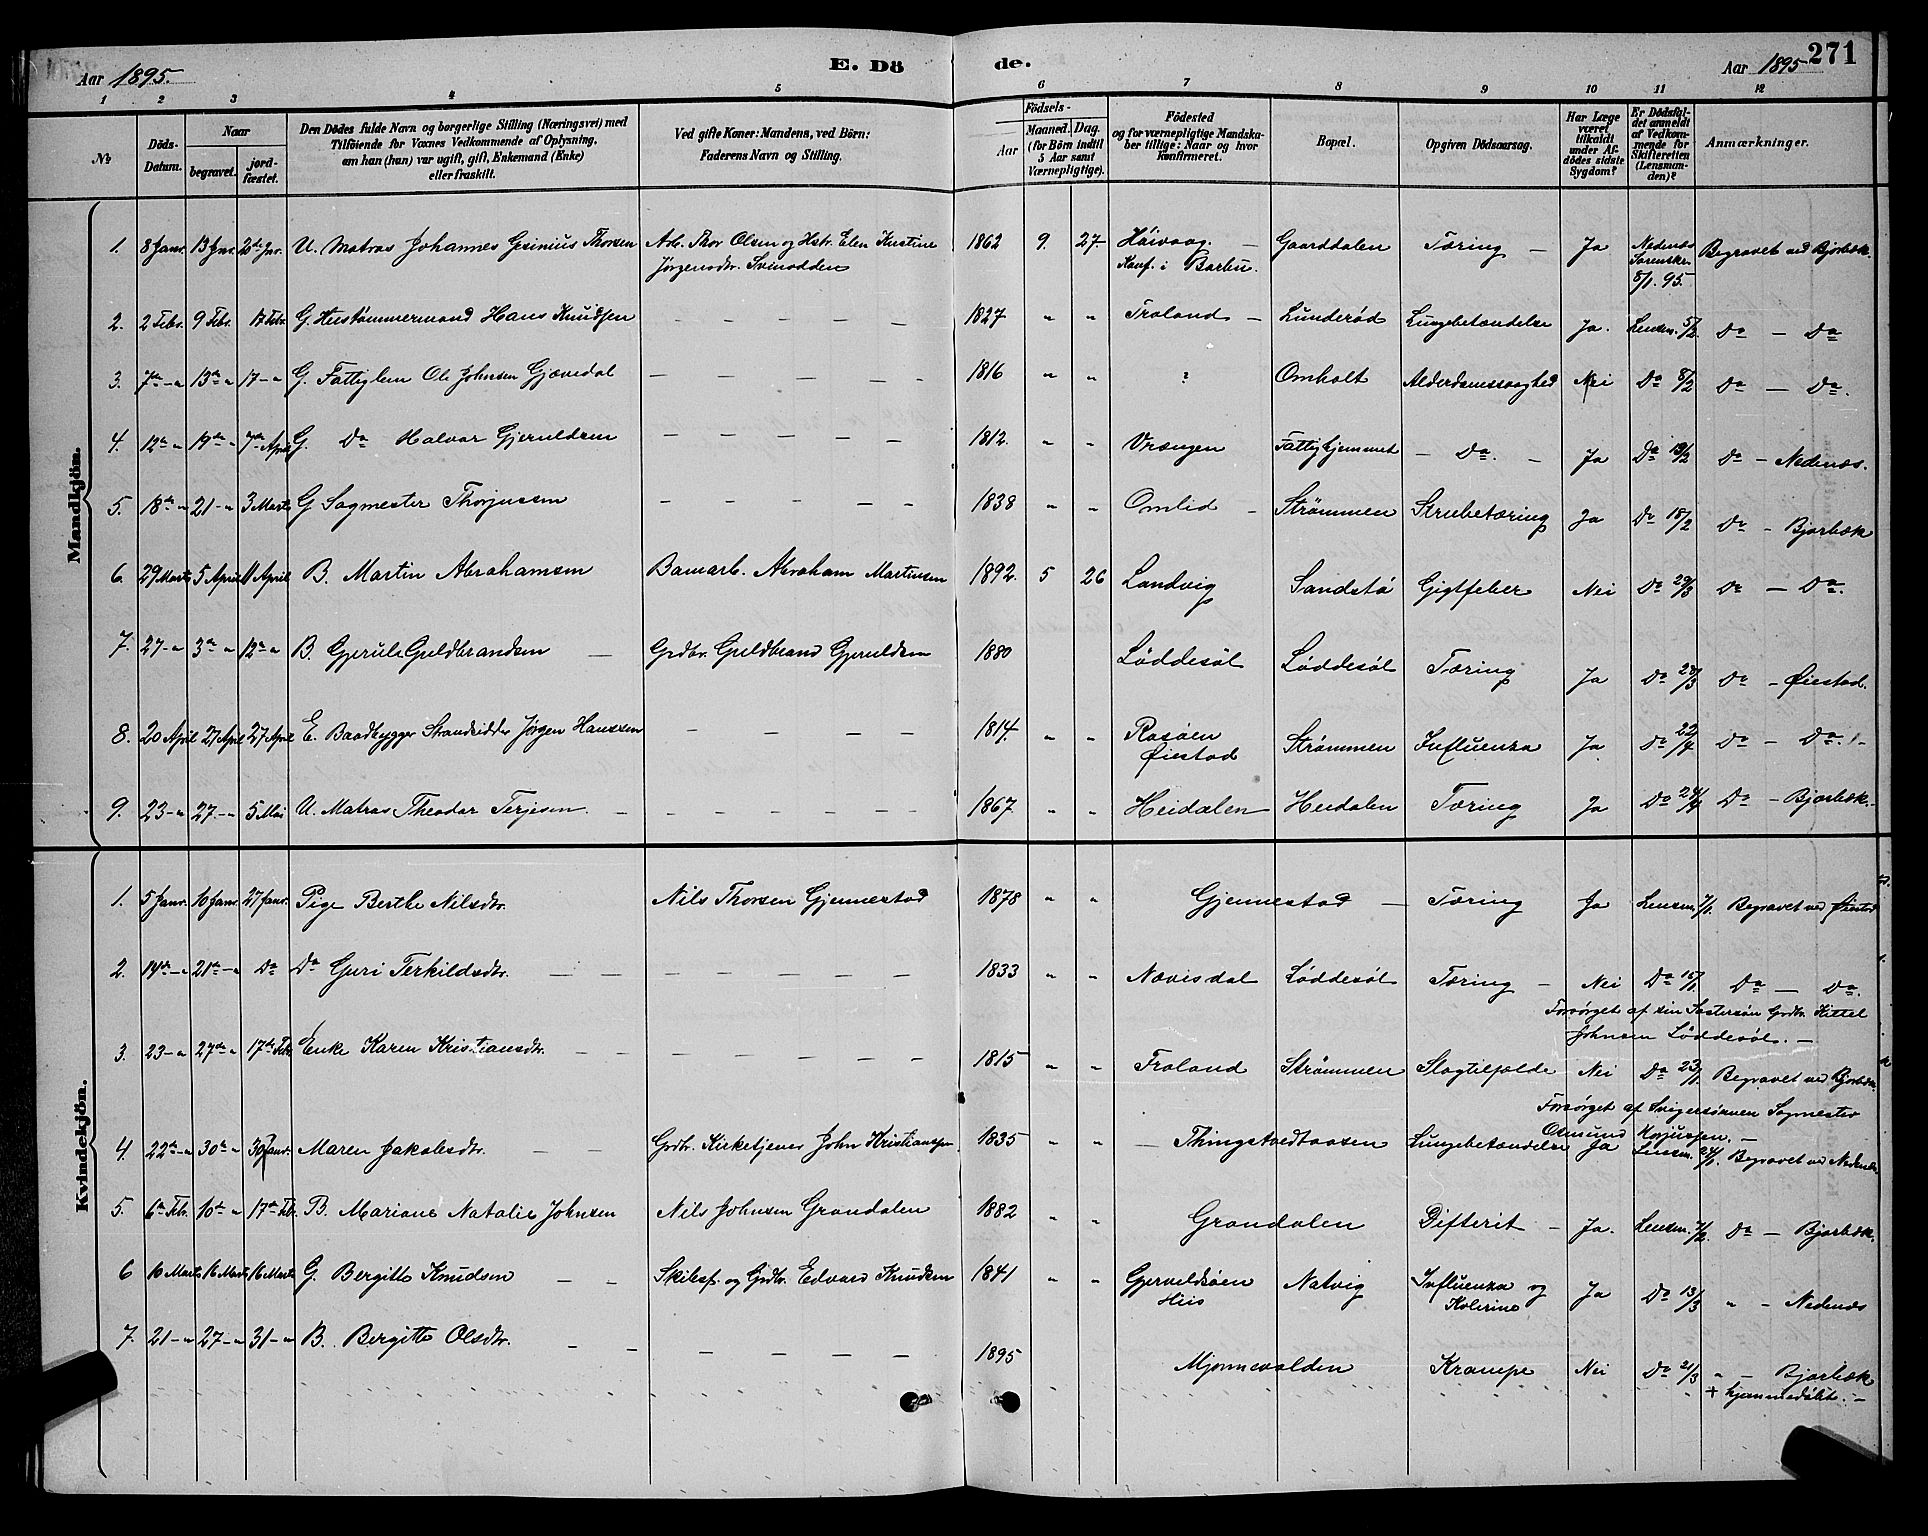 Aar 1895. E. Dö de. Aar 1895 271
1 2 3 4 5 6 7 8 9 10 11 12
№
Döds-Datum.
Naar
begravet.
jord-fæstet.
Den Dödes fulde Navn og borgerlige Stilling (Næringsvei) med
Tilföiende for Voxnes Vedkommende af Oplysning,
om han (hun) var ugift, gift, Enkemand (Enke)
eller fraskilt.
Ved gifte Koner: Mandens, ved Börn:
Faderens Navn og Stilling.
Födsels-
Aar
Maaned. Dag.
(for Börn indtil
5 Aar samt
Værnepligtige).
Födested
og for værnepligtige Mandska-
ber tillige: Naar og hvor
konfirmeret.
Bopæl.
Opgiven Dödsaarsag.
Har Læge
været
tilkaldt
under Af-
dödes sidste
Sygdom?
Er Dödsfal-
det anmeldt
af Vedkom-
mende for
Skifteretten
(Lensman-
den)?
Anmærkninger.
Mandkjön.
1. 8 Janr. 13 Jnr. 20de Jnr. U. Matros Johannes Gsinius Thorsen Arb. Thor Olsen og Hstr. Elen Kirstine 1862 9. 27 Høivaag. — Gaarddalen Tæring — Ja Nedenæs Begravet ved Bjorbæk.
Jørgensdtr. Svinodden Konf. i Barbu. Sorenskr. 8/1. 95.
2. 2 Febr. 9 Febr. 17 Febr. G. Hustømmermand Hans Knudsen — — — — — 1827 " " Froland — Lunderød Lungebetændelse Ja. Lensm. 5/2. Do — Do
3. 7de — " 13de " 17 — " G. Fattiglem Ole Johnsen Gjævedal — — — — — 1816 " " ? Omholt Alderdomssvaghed Nei Do 8/2 Do — Do.
4. 12te " 19de " 7de April G. Do Halvor Gjeruldsen — — — — — 1812. " " Vrængen Fattighjemmet — Do. — Ja Do 13/2 Do — Nedenæs.
5. 18de " 21 — " 3 Marts G Sagmester Thorjussen — — — — — 1838 " " Omlid — Strømmen Strubetæring Ja Do 18/2 Do — Bjorbæk
6. 29 Marts 5 April 11 April B. Martin Abrahamsen Banearb. Abraham Martinsen 1892. 5 26 Landvig Sandstø Gigtfeber Nei Do 29/3 Do — Do.
7. 27 — " 3de " 12te " B. Gjerul Guldbrandsen — Grdbr. Guldbrand Gjeruldsen 1880 Løddesøl Løddesøl Tæring Ja Do 28/3 Do — Øiestad.
8. 20 April 27 April 27 April E. Baadbygger Strandsidder Jørgen Hanssen — — — — — 1814. " " Rasøen Strømmen Influenza Ja Do 22/4 Do — Do.
Øiestad
9. 23 — " 27. — " 5 Mai U. Matros Theodor Terjesen. — — — — — — 1867. " " Heidalen Heidalen Tæring Ja Do 24/4 Do — Bjorbæk. —
Kvindekjön.
1. 5 Janr. 10 Janr. 27 Janr. Pige Berthe Nilsdtr. Nils Thorsen Gjennestad 1878 " " Gjennestad — Tæring Ja Lensm. 7/1. Begravet ved Øiestad
2. 14de — " 21de — " Do Do Guri Terkildsdtr. — — — — — — 1833 " " Nævisdal Løddesøl Tæring — Nei Do 15/1 Do — Do.
Forsørget af sin Søstersøn Grdbr. Kittel
Johnsen Løddesøl. —
3. 23 — " 27de " 17de Feb. Enke Karen Kristiansdtr. — — — — — — 1815 " " Froland Strømmen Slagtilfælde Nei Do 23/1 Begravet ved Bjorbæk
Forsørget af Svigersønnen Sagmester
Osmund Thorjussen. —
4. 22de " 30de " 30 Janr. Maren Jakobsdtr. — — Grdbr. Kirketjener John Kristianssen 1835 " " — Thingstvedtaasen Lungebetændelse Ja Lensm. 24/1. Begravet ved Nedenæs
5. 6te Feb. 10de " 17de Feb. B. Mariane Natalie Johnsen Nils Johnsen Grandalen 1882 " " Grandalen Difterit — Ja. Lensm. 7/2. Do — Bjorbæk.
6 10 Marts 16 Marts 16 Marts G. Bergitte Knudsen — — Skibsf. og Grdbr. Edvard Knudsen 1841 " " Gjervoldsøen Natvig Influenza og Ja Do 13/3 " — Nedenæs
His Kolerine
7. 21 — " 27 — " 31 — " B. Bergitte Olsdtr. — — — — — — 1895 Mjønnevolden Krampe Nei Do 21/3 " — Bjorbæk
+ hjemmedøbt. —